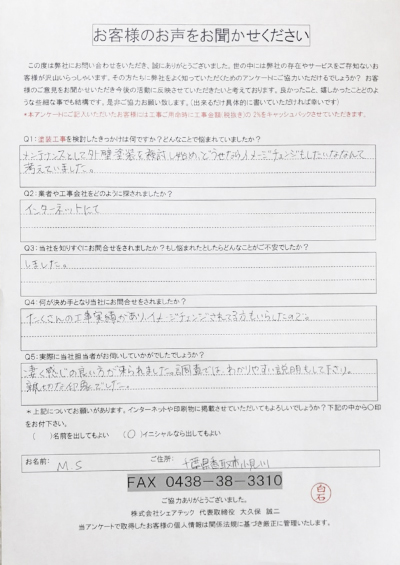 お客様のお声をお聞かせください
この度は弊社にお問い合わせをいただき、誠にありがとうございました。世の中には弊社の存在やサービスをご存知ないお
客様が沢山いらっしゃいます。その方たちに弊社をよく知っていただくためのアンケートにご協力いただけるでしょうか？お客
様のご意見をお聞かせいただき今後の活動に反映させていただきたいと考えております。良かったこと、嬉しかったことどのよ
うな些細な事でも結構です。是非ご協力お願い致します。（出来るだけ具体的に書いていただければ幸いです）
*本アンケートにご記入いただいたお客様には工事ご用命時に工事金額(税抜き)の 2%をキャッシュバックさせていただきます。
Q1:塗装工事を検討したきっかけは何ですか？どんなことで悩まれていましたか？
メンテナンスとして外壁塗装を検討し始め、どうせならイメージチェンジもしたいななんて
考えていました。
Q2:業者や工事会社をどのように探されましたか？
インターネットにて
Q3:当社を知りすぐにお問合せをされましたか？もし悩まれたとしたらどんなことがご不安でしたか？
しました。
Q4:何が決め手となり当社にお問合せをされましたか？
たくさんの工事実績があり、イメージチェンジされてる方もいらしたので。
Q5:実際に当社担当者がお伺いしていかがでしたでしょうか？
凄く感じの良い方が来られました。調査では、わかりやすい説明もして下さり。
親切な印象でした。
*上記についてお願いがあります。インターネットや印刷物に掲載させていただいてもよろしいでしょうか？下記の中から○印
をお付下さい。
（　）名前を出してもよい　（○）イニシャルなら出してもよい
お名前: M.S ご住所: 千葉県香取市小見川
FAX 0438-38-3310
白石
ご協力ありがとうございました。
株式会社シェアテック 代表取締役 大久保 誠二
当アンケートで取得したお客様の個人情報は関係法規に基づき厳正に管理いたします。